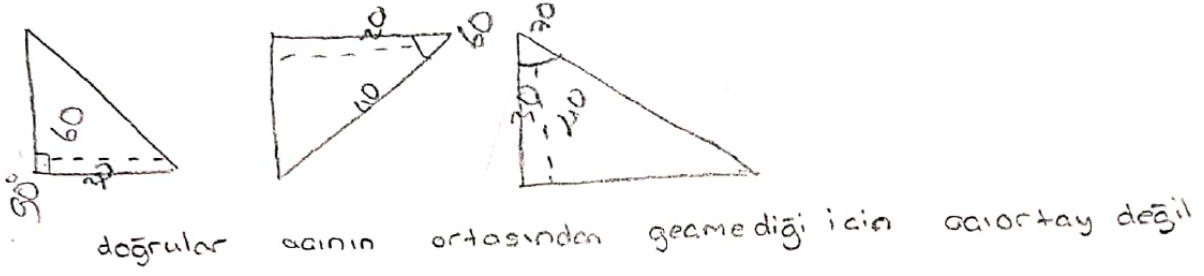 20
60
70
60
40
30
40
30
90°
doğrular acının ortasından geçmediği için açıortay değil